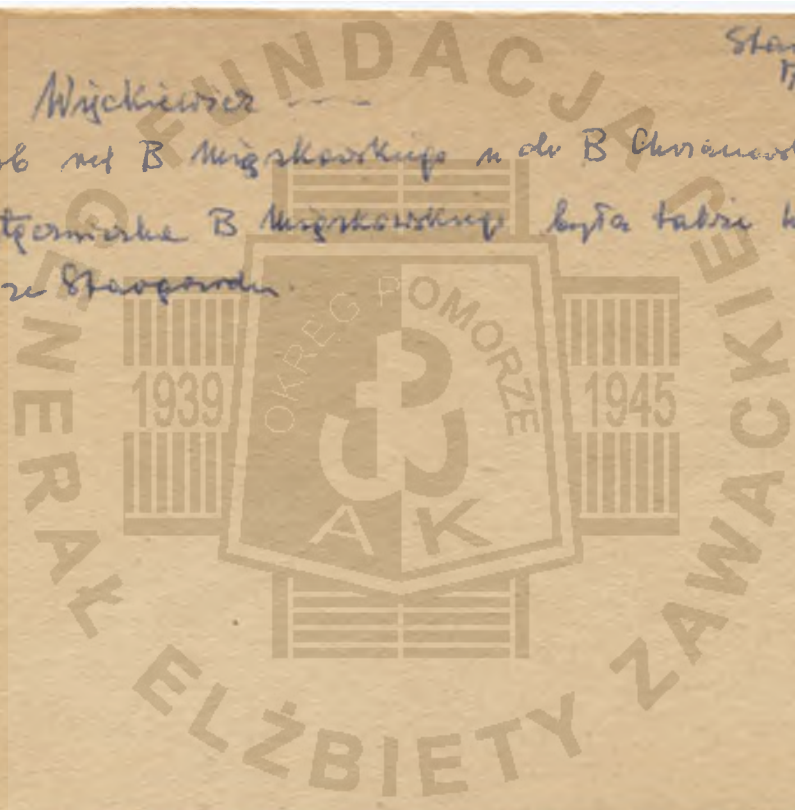 Star
Więckiewicz ----
ob rel B Mięszkowskiego n do B Chrzanows
łączniczka B Mięszkowskiego była także
ze Starogardu.
FUNDACJA GENERAŁ ELŻBIETY ZAWACKIEJ
OKRĘG POMORZE
1939 1945
AK